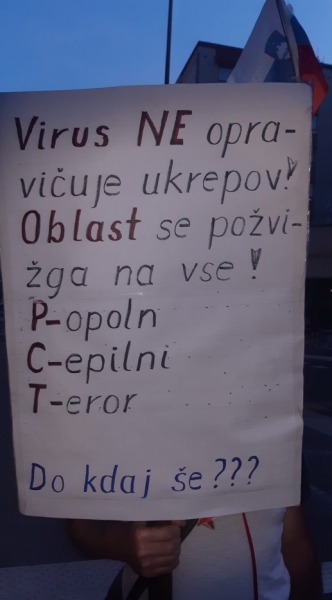 Virus NE opra-
vičuje ukrepov!
Oblast se požvi-
žga na vse !
P-opoln
C-epilni
T-eror
Do kdaj še???